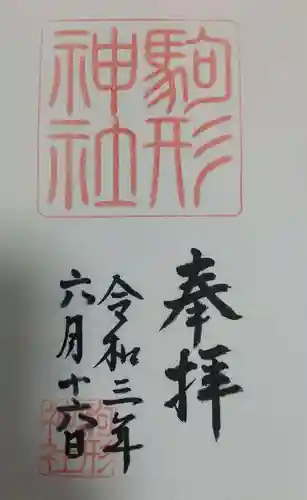 駒形
神社
奉拝
令和三年
六月十六日
駒形
神社